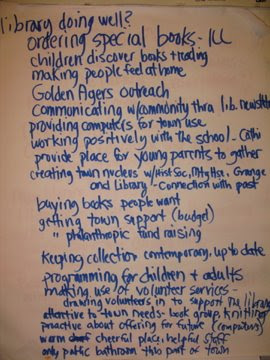 library doing well?
ordering special books - ILL
children discover books + reading
making people feel at home
Golden Agers outreach
Communicating w/community thru lib. newslett
providing computers for town use
working positively with the school - Cathi
provide place for young parents to gather
creating town nucleus w/Hist Soc, Mtg Hse, Grange
and Library - Connection with past
buying books people want
getting town support (budget)
" philanthropic fund raising
Keeping collection contemporary, up to date
programming for children + adults
making use of volunteer services -
drawing volunteers in to support the library
attentive to town needs - book group, knitting
proactive about offering for future (computers)
warm cheerful place, helpful staff
only public bathroom this part of town